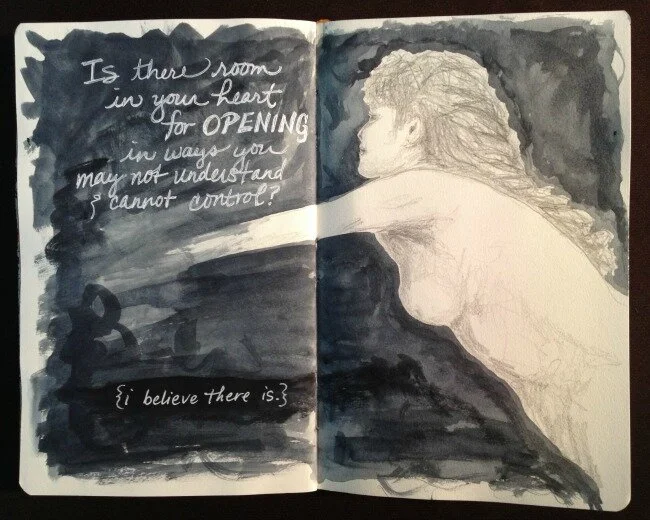 Is there room
in your heart
for OPENING
in ways you
may not understand
& cannot control?
{i believe there is.}